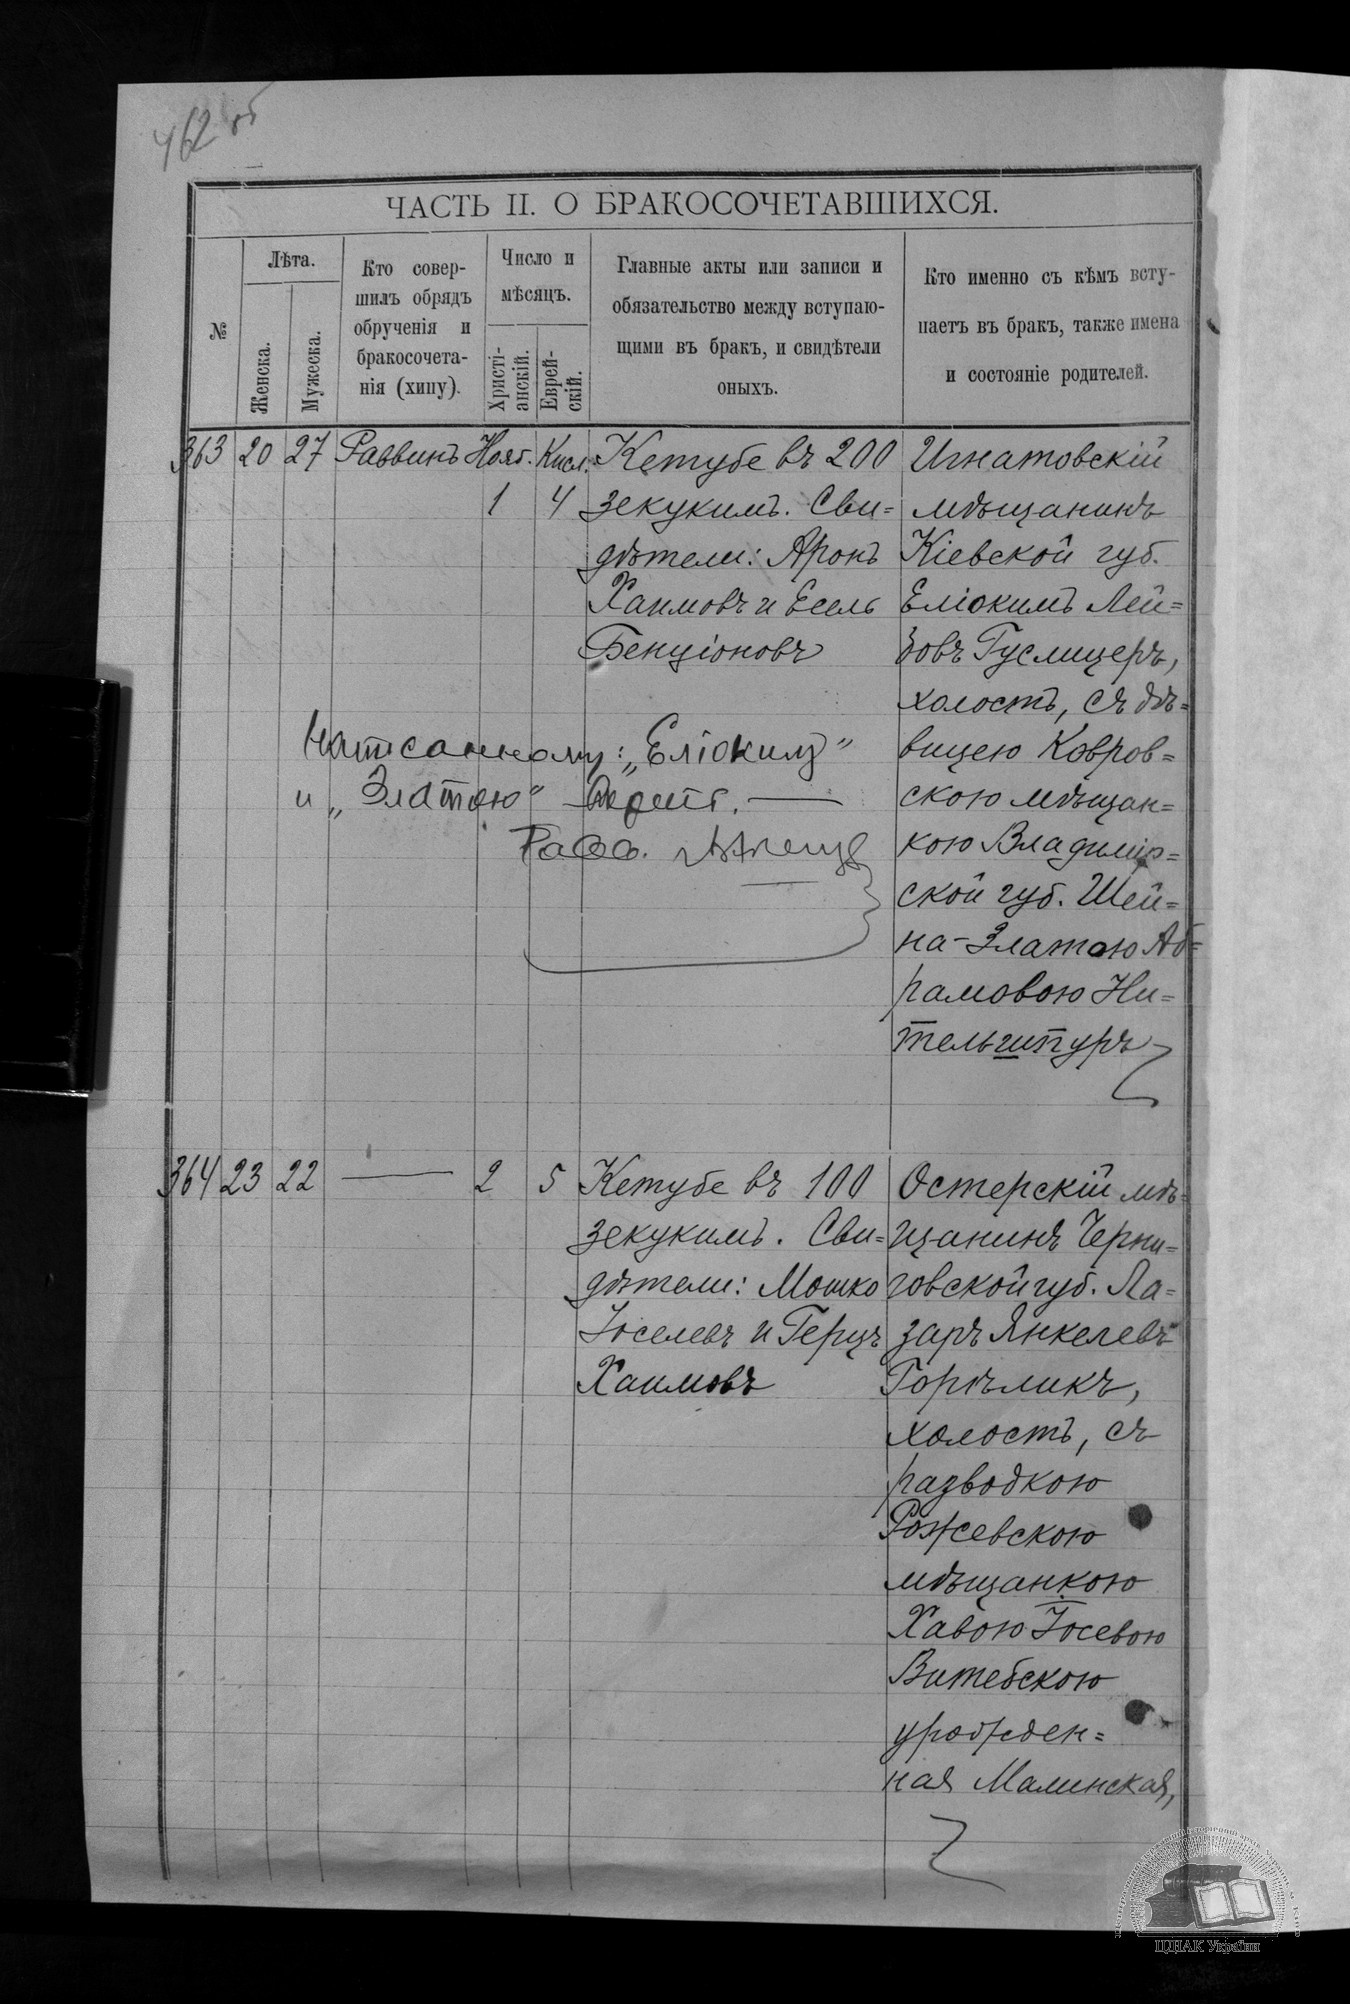 462 об
ЧАСТЬ II. О БРАКОСОЧЕТАВШИХСЯ.
№
Лѣта.
Женска.
Мужеска.
Кто совер-
шилъ обрядъ
обрученія и
бракосочета-
нія (хипу).
Число и
мѣсяцъ.
Христі-
анскій.
Еврей-
скій.
Главные акты или записи и
обязательство между вступаю-
щими въ бракъ, и свидѣтели
оныхъ.
Кто именно съ кѣмъ всту-
паетъ въ бракъ, также имена
и состояніе родителей.
363 20 27 Раввинъ Нояб. Кисл.
1 4
Кетубе въ 200
зекукимъ. Сви=
дѣтели: Аронъ
Хаимовъ и Есель
Бенціоновъ
Игнатовскій
мѣщанинъ
Кіевской губ.
Еліокимъ Лей=
бовъ Гуслицеръ,
холостъ, съ дѣ=
вицею Ковров=
скою мѣщан=
кою Владимір=
ской губ. Шей=
на-Златою Аб=
рамовою Ни=
тельгитуръ
Написанному: „Еліокимъ"
и „Златою"
Равв.
364 23 22 — 2 5
Кетубе въ 100
зекукимъ. Сви=
дѣтели: Мошко
Іоселевъ и Герцъ
Хаимовъ
Остерскій мѣ=
щанинъ Черни=
говской губ. Ла=
заръ Янкелевъ
Горѣликъ,
холостъ, съ
разводкою
Рожевскою
мѣщанкою
Хавою Іосевою
Витебскою
урожден=
ная Малинская,
ЦДІАК України